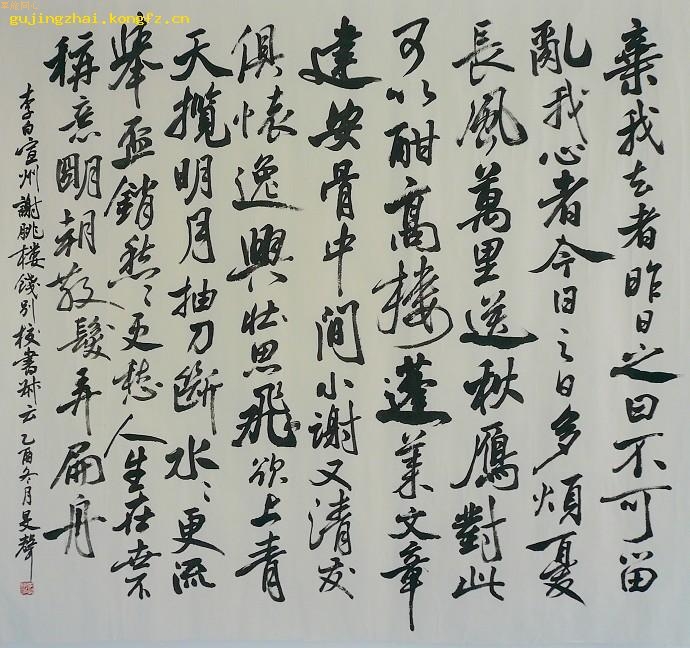 gujingzhai.kongfz.cn
棄我去者昨日之日不可留
亂我心者今日之日多煩憂
長風萬里送秋鴈對此
可以酣高樓蓬萊文章
建安骨中間小謝又清發
俱懷逸興壯思飛欲上青
天攬明月抽刀斷水〻更流
舉盃銷愁〻更愁人生在世不
稱意明朝散髮弄扁舟
李白宣州謝朓樓餞別校書叔云 乙酉冬月旻聲